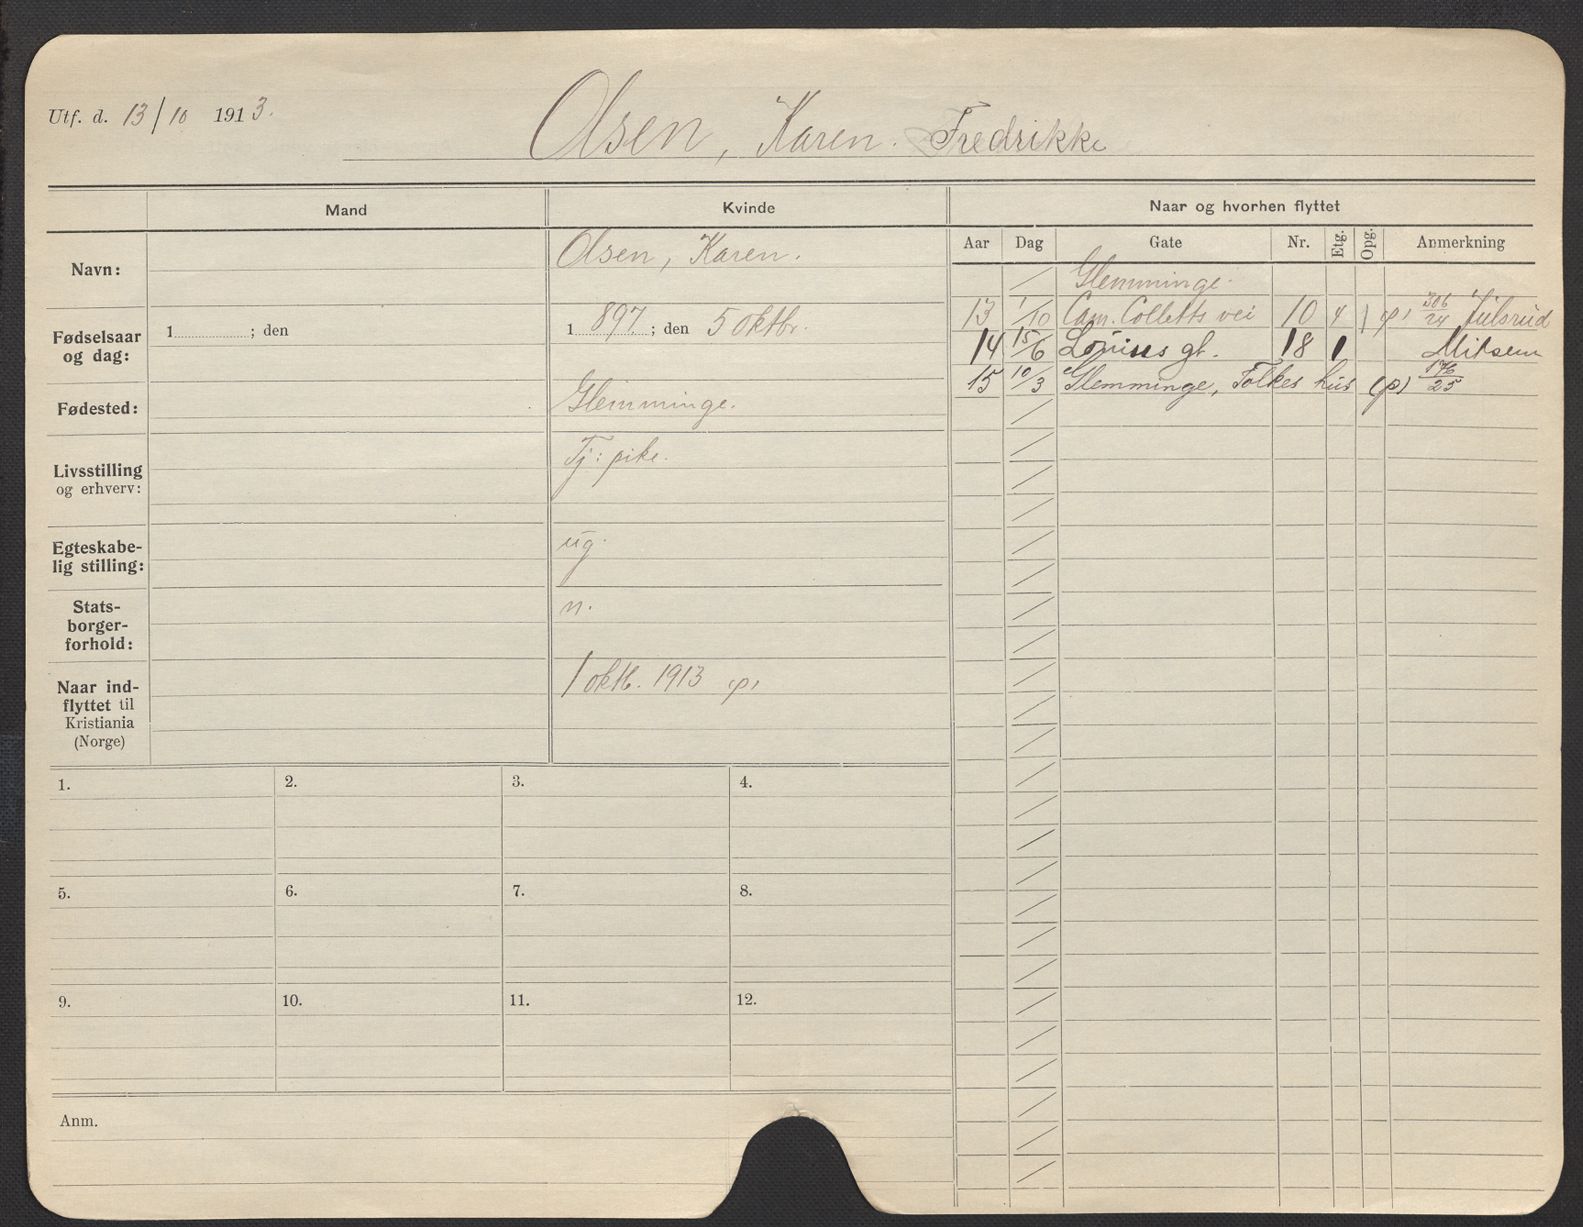 Utf. d. 13/10 1913.
Olsen, Karen. Fredrikke
Mand
Kvinde
Naar og hvorhen flyttet
Navn:
Olsen, Karen.
Fødselsaar og dag:
1 ; den
1 897 ; den 5 oktbr.
Fødested:
Glemminge.
Livsstilling og erhverv:
Tj: pike.
Egteskabe-
lig stilling:
ug.
Stats-
borger-
forhold:
n.
Naar ind-
flyttet til
Kristiania
(Norge)
1 oktb. 1913 (p)
Aar Dag Gate Nr. Etg. Opg. Anmerkning
Glemminge.
13 1/10 Cam. Colletts vei 10 4 (p) 306/24 Julsrud
14 15/6 Louises gt. 18 1
15 10/3 Glemminge, Folkes hus (p) 176/25
1. 2. 3. 4.
5. 6. 7. 8.
9. 10. 11. 12.
Anm.